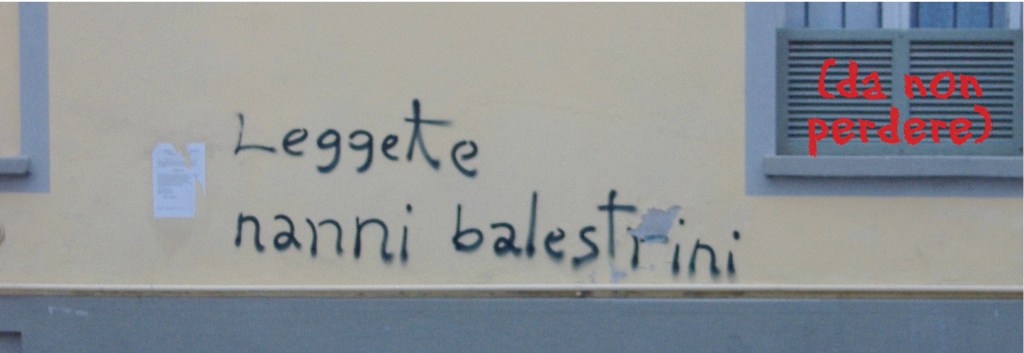 Leggete
nanni balestrini
(da non
perdere)